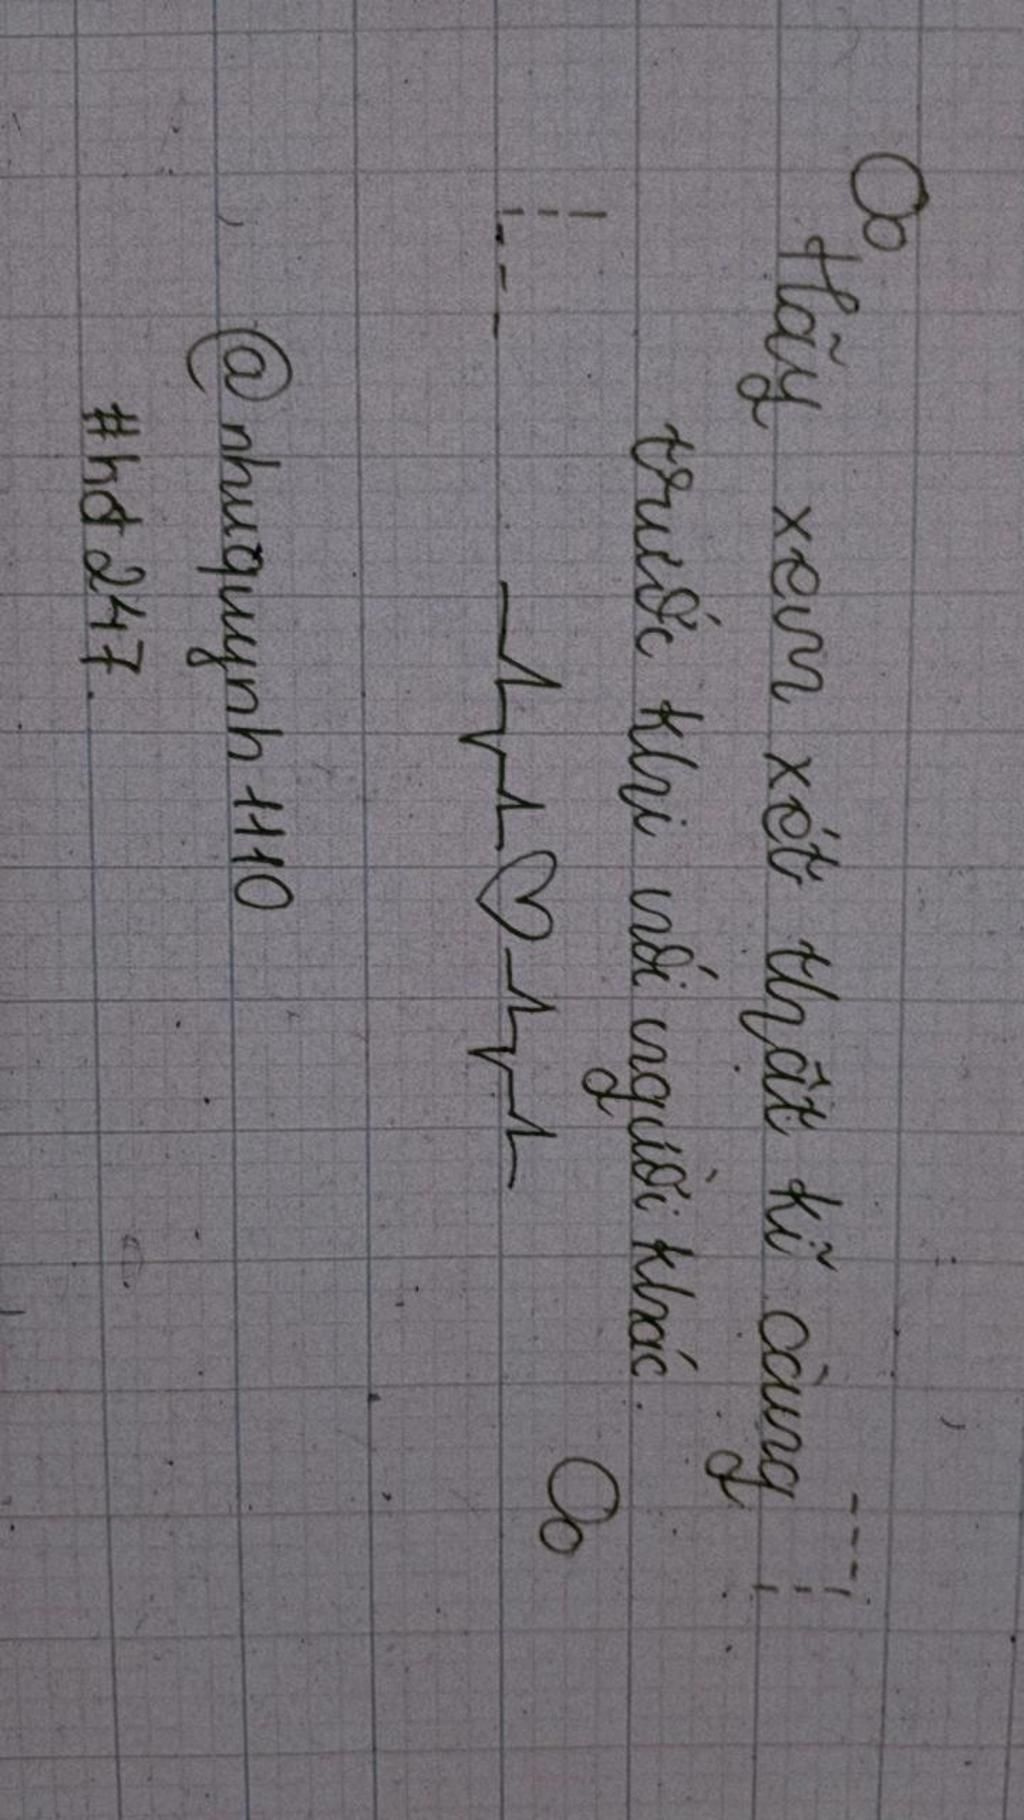 Hãy xem xét thật kĩ càng
trước khi nói người khác.
@nhuquynh1110
#hd247.